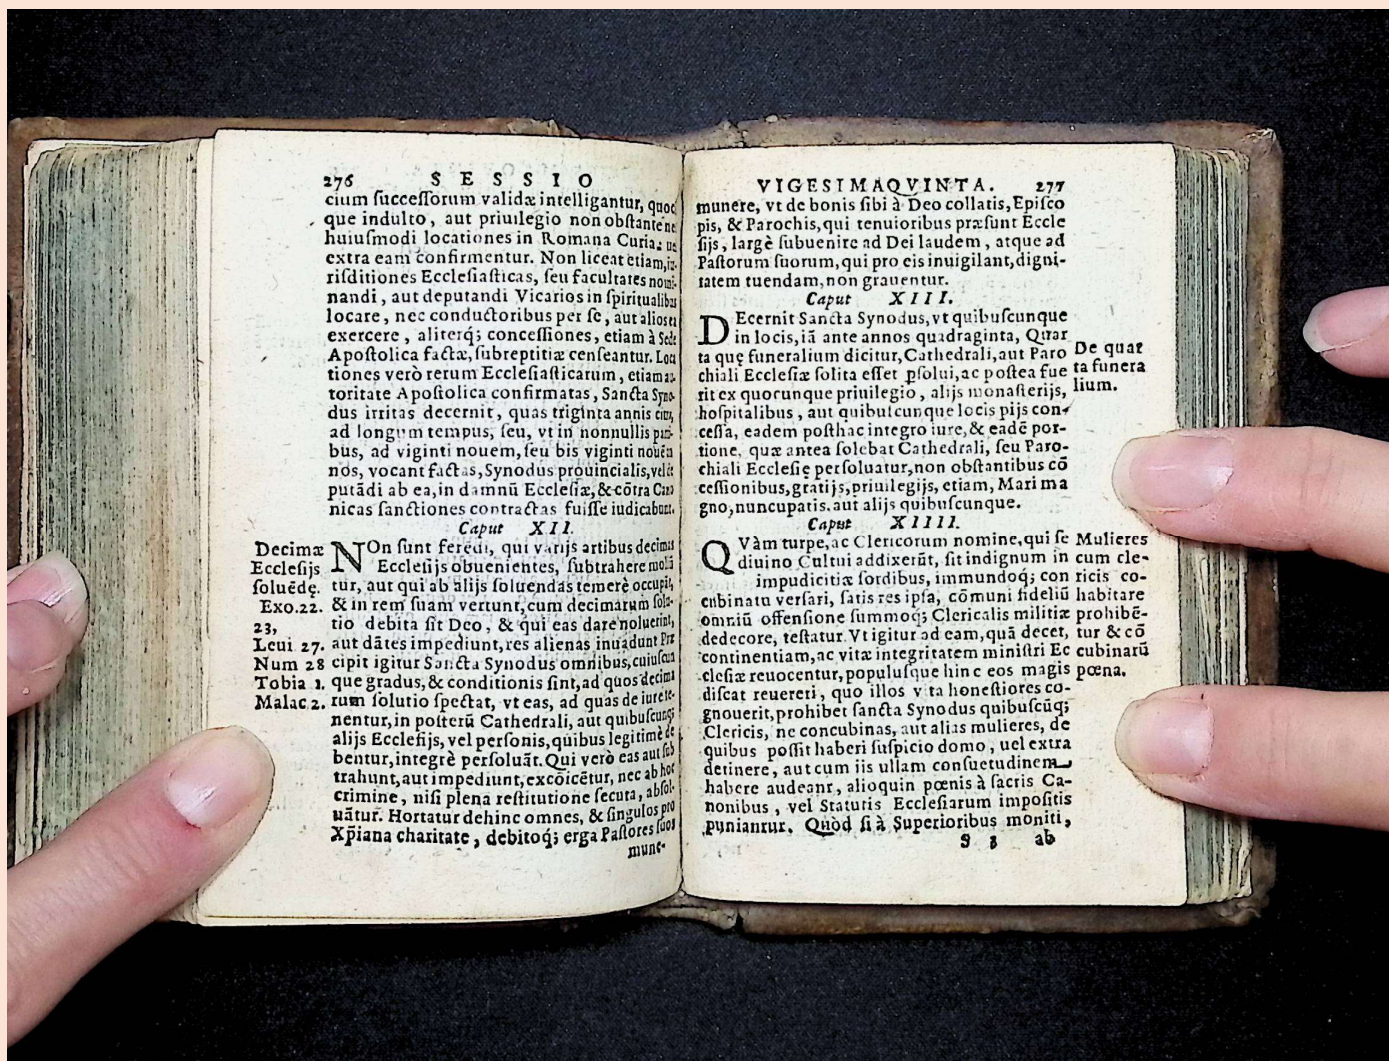 276 SESSIO
cium ſucceſſorum validæ intelligantur, quoc
que indulto, aut priuilegio non obſtante ne
huiuſmodi locationes in Romana Curia: ue
extra eam confirmentur. Non liceat etiam, iu-
riſditiones Eccleſiaſticas, ſeu facultates nomi-
nandi, aut deputandi Vicarios in ſpiritualibus
locare, nec conductoribus per ſe, aut alios ea
exercere, aliterq; conceſſiones, etiam à Sede
Apoſtolica factæ, ſubreptitiæ cenſeantur. Loca
tiones verò rerum Eccleſiaſticarum, etiam au-
toritate Apoſtolica confirmatas, Sancta Syno-
dus irritas decernit, quas triginta annis citra,
ad longum tempus, ſeu, vt in nonnullis parti-
bus, ad viginti nouem, ſeu bis viginti nouẽ an
nos, vocant factas, Synodus prouincialis, vel de
putãdi ab ea, in damnũ Eccleſiæ, & cõtra Cano
nicas ſanctiones contractas fuiſſe iudicabunt.
Caput XII.
NOn ſunt ferẽdi, qui varijs artibus decimas
Eccleſijs obuenientes, ſubtrahere moliũ
tur, aut qui ab alijs ſoluendas temerè occupãt,
& in rem ſuam vertunt, cum decimarum ſolu-
tio debita ſit Deo, & qui eas dare noluerint,
aut dãtes impediunt, res alienas inuadunt Præ
cipit igitur Sancta Synodus omnibus, cuiuſcun
que gradus, & conditionis ſint, ad quos decima
rum ſolutio ſpectat, vt eas, ad quas de iure te-
nentur, in poſterũ Cathedrali, aut quibuſcunq;
alijs Eccleſijs, vel perſonis, quibus legitimè de
bentur, integrè perſoluãt. Qui verò eas aut ſub
trahunt, aut impediunt, excõicẽtur, nec ab hoc
crimine, niſi plena reſtitutione ſecuta, abſol-
uãtur. Hortatur dehinc omnes, & ſingulos pro
Xp̃iana charitate, debitoq; erga Paſtores ſuos
mune-
Decimæ
Eccleſijs
ſoluẽdę.
Exo.22.
23,
Leui 27.
Num 28
Tobia 1.
Malac 2.
VIGESIMAQVINTA. 277
munere, vt de bonis ſibi à Deo collatis, Epiſco
pis, & Parochis, qui tenuioribus præſunt Eccle
ſijs, largè ſubuenire ad Dei laudem, atque ad
Paſtorum ſuorum, qui pro eis inuigilant, digni-
tatem tuendam, non grauentur.
Caput XIII.
DEcernit Sancta Synodus, vt quibuſcunque
in locis, iã ante annos quadraginta, Quar
ta quę funeralium dicitur, Cathedrali, aut Paro
chiali Eccleſiæ ſolita eſſet p̱ſolui, ac poſtea fue
rit ex quocunque priuilegio, alijs monaſterijs,
hoſpitalibus, aut quibuſcunque locis pijs con-
ceſſa, eadem poſthac integro iure, & eadẽ por-
tione, quæ antea ſolebat Cathedrali, ſeu Paro-
chiali Eccleſię perſoluatur, non obſtantibus cõ
ceſſionibus, gratijs, priuilegijs, etiam, Mari ma
gno, nuncupatis. aut alijs quibuſcunque.
Caput XIIII.
QVàm turpe, ac Clericorum nomine, qui ſe
diuino Cultui addixerũt, ſit indignum in
impudicitiæ ſordibus, immundoq; con
cubinatu verſari, ſatis res ipſa, cõmuni fideliũ
omniũ offenſione ſummoq; Clericalis militiæ
dedecore, teſtatur. Vt igitur ad eam, quã decet,
continentiam, ac vitæ integritatem miniſtri Ec
cleſiæ reuocentur, populuſque hinc eos magis
diſcat reuereri, quo illos vita honeſtiores co-
gnouerit, prohibet ſancta Synodus quibuſcũq;
Clericis, ne concubinas, aut alias mulieres, de
quibus poſſit haberi ſuſpicio domo, uel extra
detinere, aut cum iis ullam conſuetudinem
habere audeant, alioquin pœnis à ſacris Ca-
nonibus, vel Statutis Eccleſiarum impoſitis
puniantur. Quòd ſi à Superioribus moniti,
S 3 ab
De quar
ta funera
lium.
Mulieres
cum cle-
ricis co-
habitare
prohibẽ-
tur & cõ
cubinarũ
pœna.